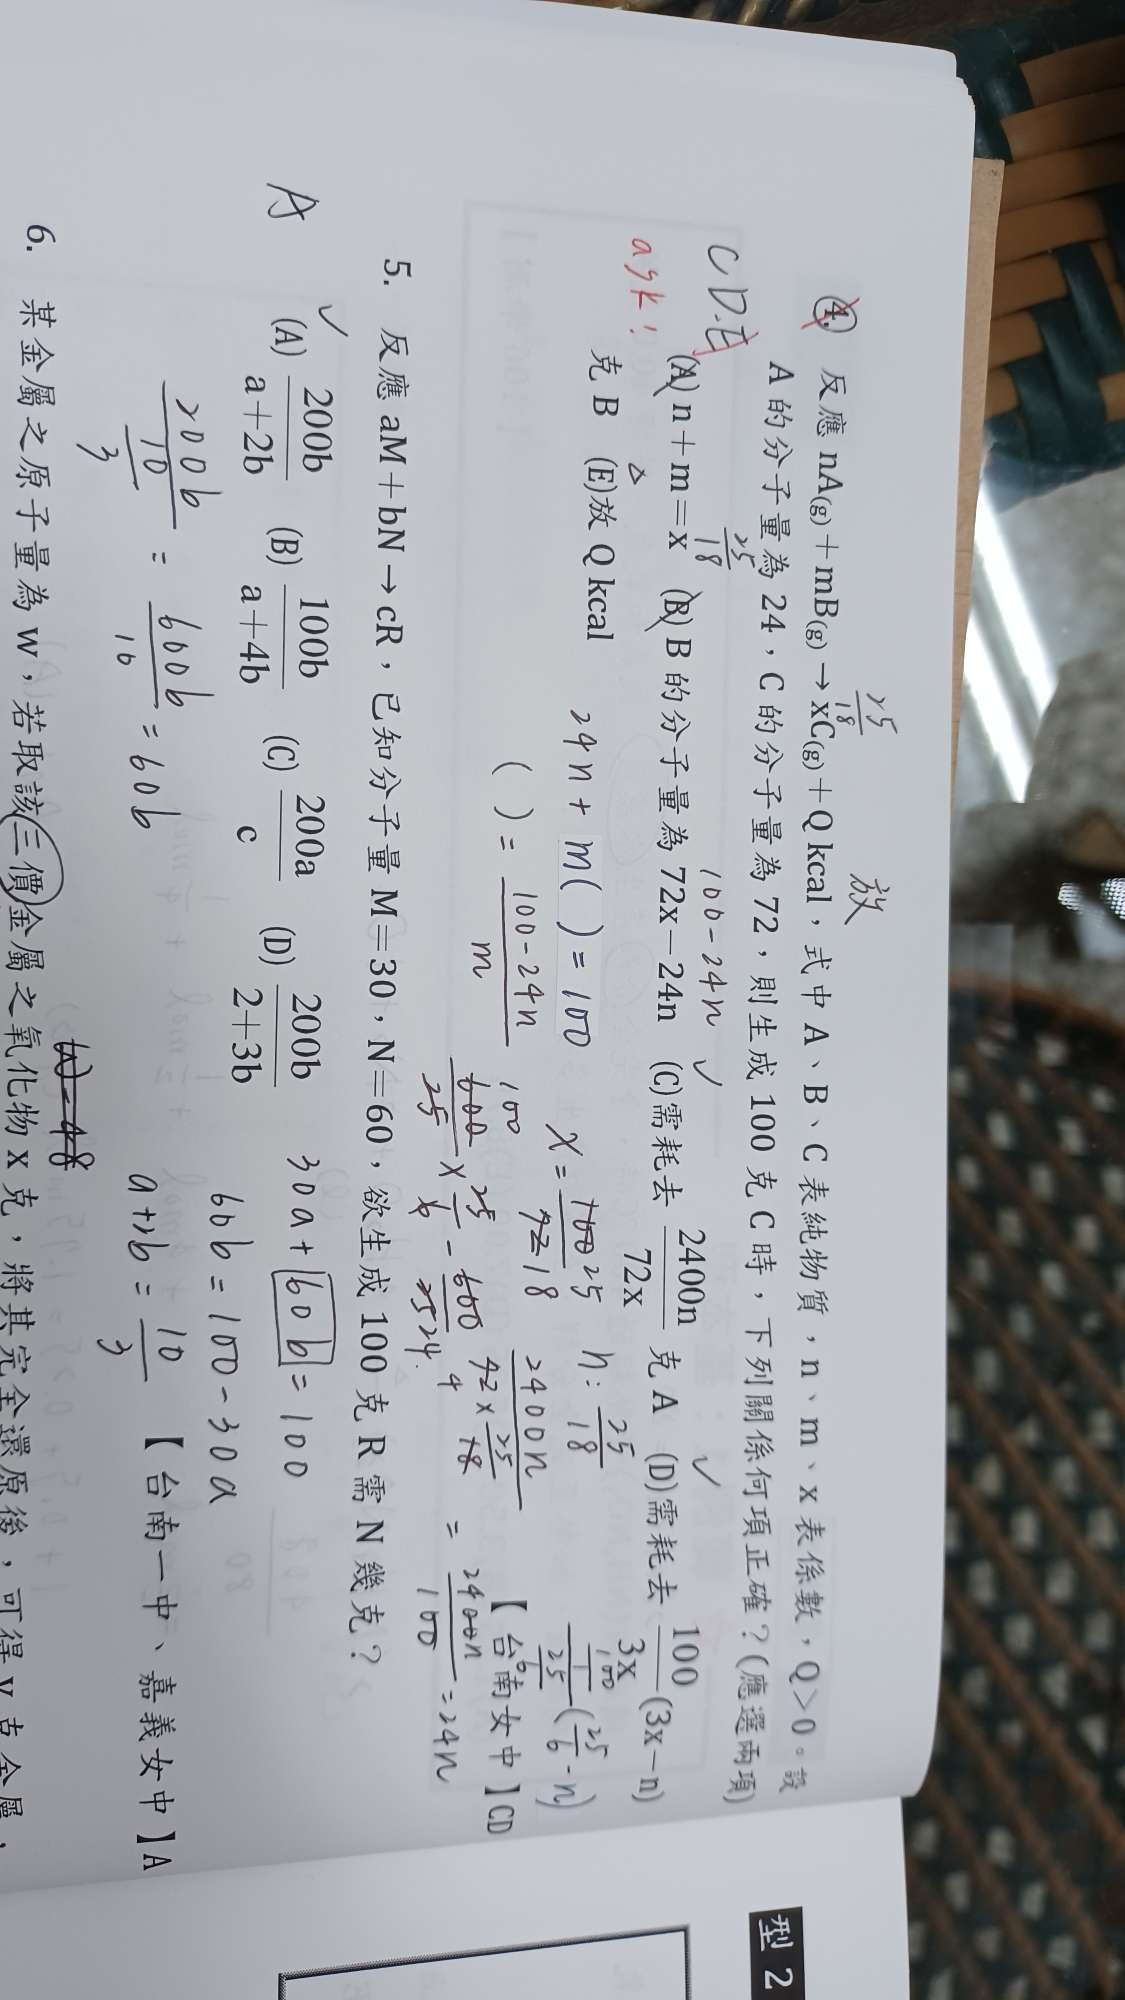 放
25
18
④ 反應 nA(g)+mB(g)→xC(g)+Q kcal,式中 A、B、C 表純物質,n、m、x 表係數,Q>0。設
A 的分子量為 24,C 的分子量為 72,則生成 100 克 C 時,下列關係何項正確?(應選兩項)
CD.E
25
18
100-24n ✓
✓
(A) n+m=x (B) B 的分子量為 72x-24n (C)需耗去 2400n/72x 克 A (D)需耗去 100/3x (3x-n)
ask!
克 B (E)放 Q kcal
24n + m( ) = 100
x = 100 25 / 72 18
n: 25/18
1/100
1/25/6 (25/6 - n)
( ) = 100-24n / m
2400n / 72 × 25/18 = 2400n/100 = 24n
4
【台南女中】CD
100
600/25 × 25/6 - 600/25 24.
5. 反應 aM+bN→cR,已知分子量 M=30,N=60,欲生成 100 克 R 需 N 幾克?
A
✓
(A) 200b/a+2b (B) 100b/a+4b (C) 200a/c (D) 200b/2+3b
30a + 60b = 100
60b = 100-30a
200b / 10/3 = 600b/10 = 60b
a+2b = 10/3
【台南一中、嘉義女中】A
6. 某金屬之原子量為 w,若取該三價金屬之氧化物 x 克,將其完全還原後,可得 y 克金屬,
型 2